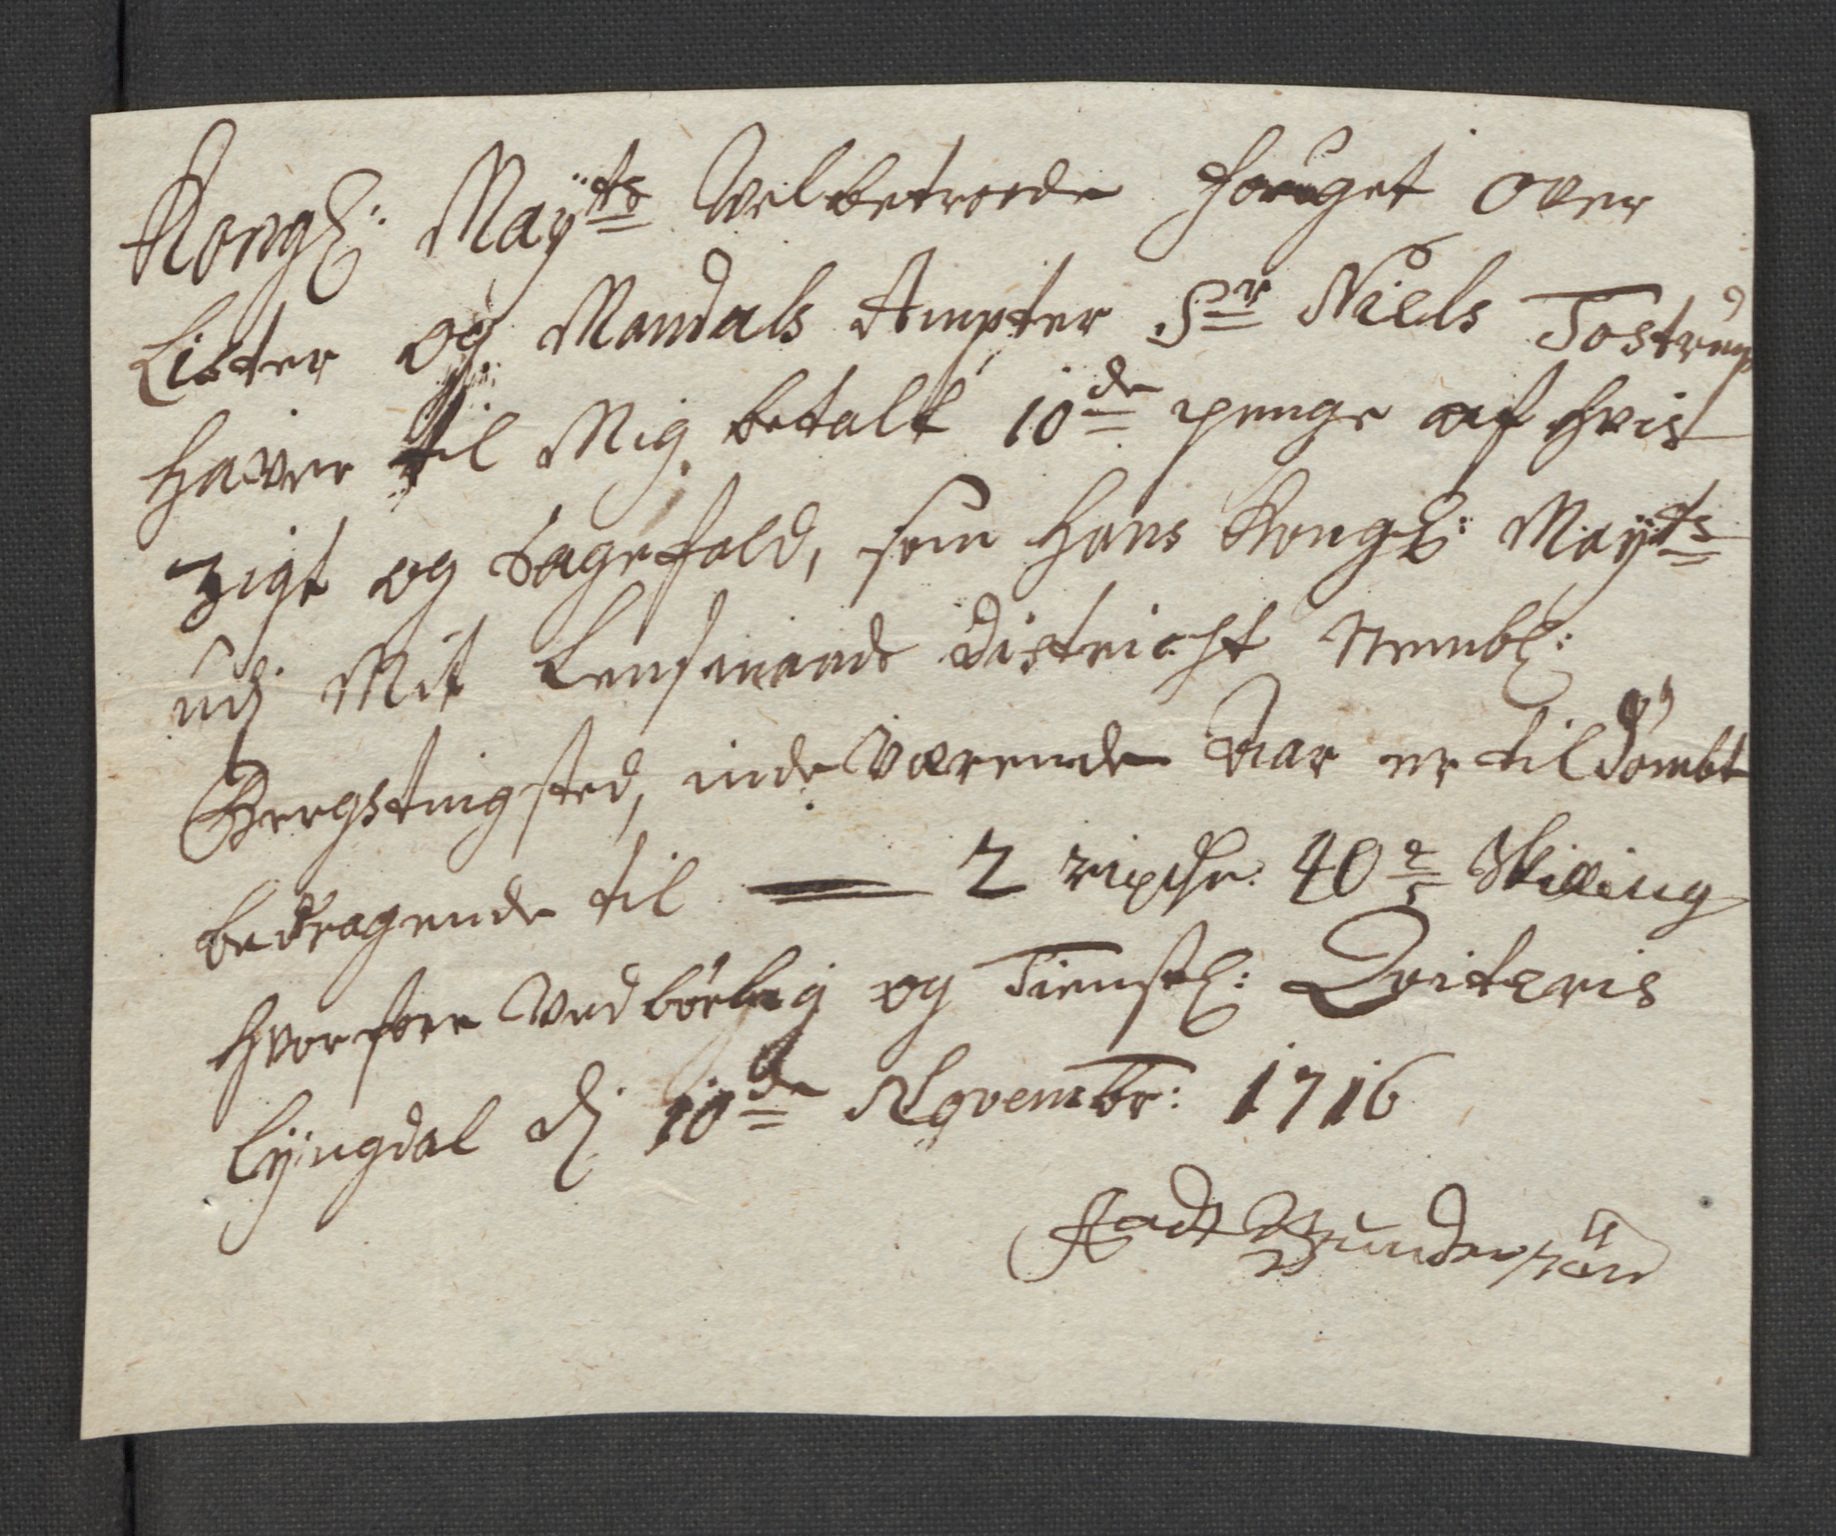 Kongl: Maÿts Velbetroede fouget over
Lister og Mandals Ampter Sr Niels Tostrup
haver til Mig betalt 10de penge af hvis
Sigt og Sagefald, som hans Kongl: Maÿts
udj Mit Lensmands District Nembl:
Bergs tingsted, indeværende Aar er tildømbt
bedragende til — 2 rixdr: 40 2/5 Skilling
hvorfore Vedbørlig og Tienstl: Qviteris
Lÿngdal dj 10de Novembr: 1716